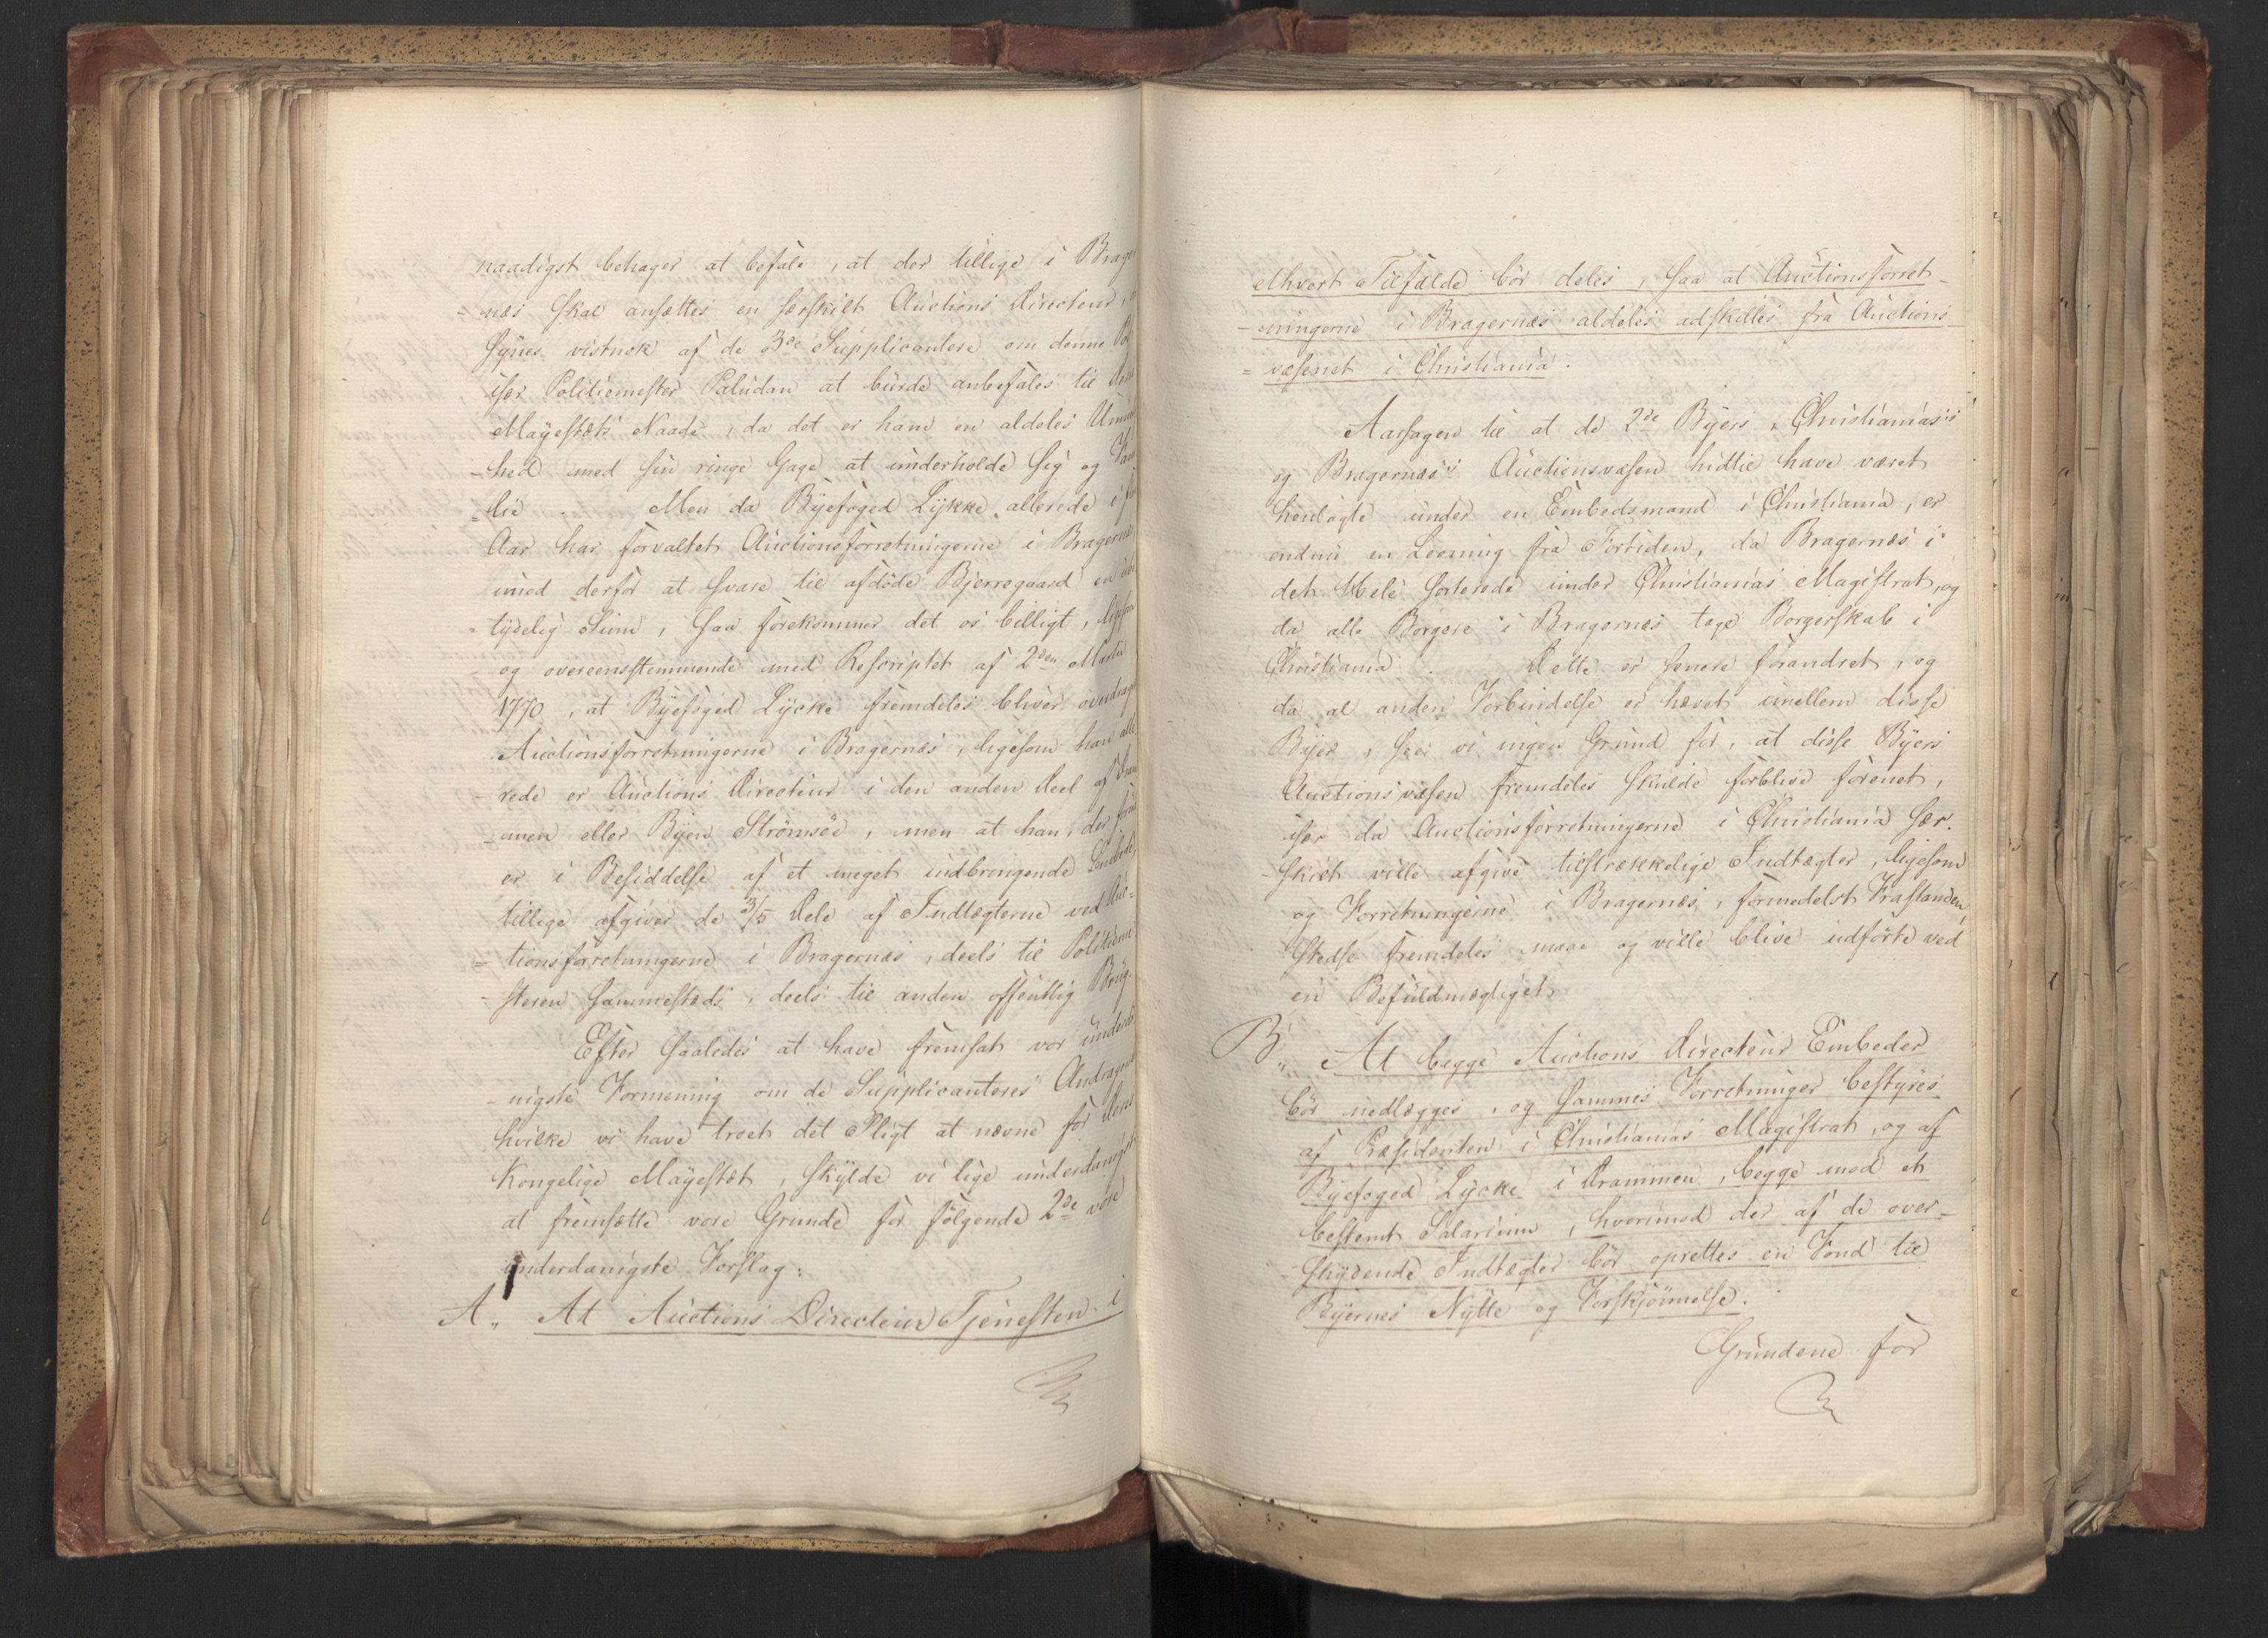 naadigst behager at befale, at der tillige i Brager
-næs skal ansættes en særskilt Auctions Directeur,
synes vistnok af de 3de Supplicantere om denne
især Politiemester Paludan at burde anbefales til
Mayestæts Naade, da det er ham en aldeles
-hed med sin ringe Gage at underholde sig og
=lie. Men da Byefoged Lykke allerede i
Aar har forvaltet Auctionsforretningerne i Bragernæs,
imod derfor at svare til afdøde Bjerregaard en
-tydelig Sum, saa forekommer det os billigt,
og overeensstemmende med Rescriptet af 2den Martii
1770, at Byefoged Lycke fremdeles bliver overdraget
Auctionsforretningerne i Bragernæs, ligesom han alle
-rede er Auctions Directeur i den anden Deel af Dram
-men eller Byen Strömsöe, men at han, der
er i Besiddelse af et meget indbringende Embede,
tillige afgiver de 3/5 Dele af Indtægterne ved Auc=
=tionsforretningerne i Bragernæs, deels til Politieme
-steren sammesteds, deels til anden offentlig Brug.
Efter saaledes at have fremsat vor underda
-nigste Formening om de Supplicanteres Andragende
hvilke vi have troet det Pligt at nævne for Deres
Kongelige Mayestæt, skylde vi lige underdanigst
at fremsætte vore Grunde for følgende 2de vore
underdanigste Forslag:
A. At Auctions Directeur Tjenesten i
ethvert Tilfælde bör deles, saa at Auctionsforret-
-ningerne i Bragernæs aldeles adskilles fra Auctions
=væsenet i Christiania.
Aarsagen til at de 2de Byers, Christianias's
og Bragernæs's Auctionsvæsen hidtil have været
henlagte under en Embedsmand i Christiania, er
endnu en Levning fra Fortiden, da Bragernæs i
det Hele sorterede under Christianias Magistrat, og
da alle Borgere i Bragernæs tage Borgerskab i
Christiania. Dette er senere forandret, og
da al anden Forbindelse er hævet imellem disse
Byer, see vi ingen Grund for, at disse Byers
Auctionsvæsen fremdeles skulde forblive forenet,
især da Auctionsforretningerne i Christiania sær-
-skilt ville afgive tilstrækkelige Indtægter, ligesom
og Forretningerne i Bragernæs, formedelst Frastanden,
stedse fremdeles maae og ville blive udförte ved
en Befuldmægtiget.
B. At begge Auctions Directeur Embeder
bör nedlægges, og sammes Forretninger bestyres
af Præsidenten i Christianias Magistrat, og af
Byefoged Lycke i Drammen, begge imod et
bestemt Salarium, hvorimod der af de over-
-skydende Indtægter bör oprettes en Fond til
Byernes Nytte og Forskjönnelse.
Grundene for